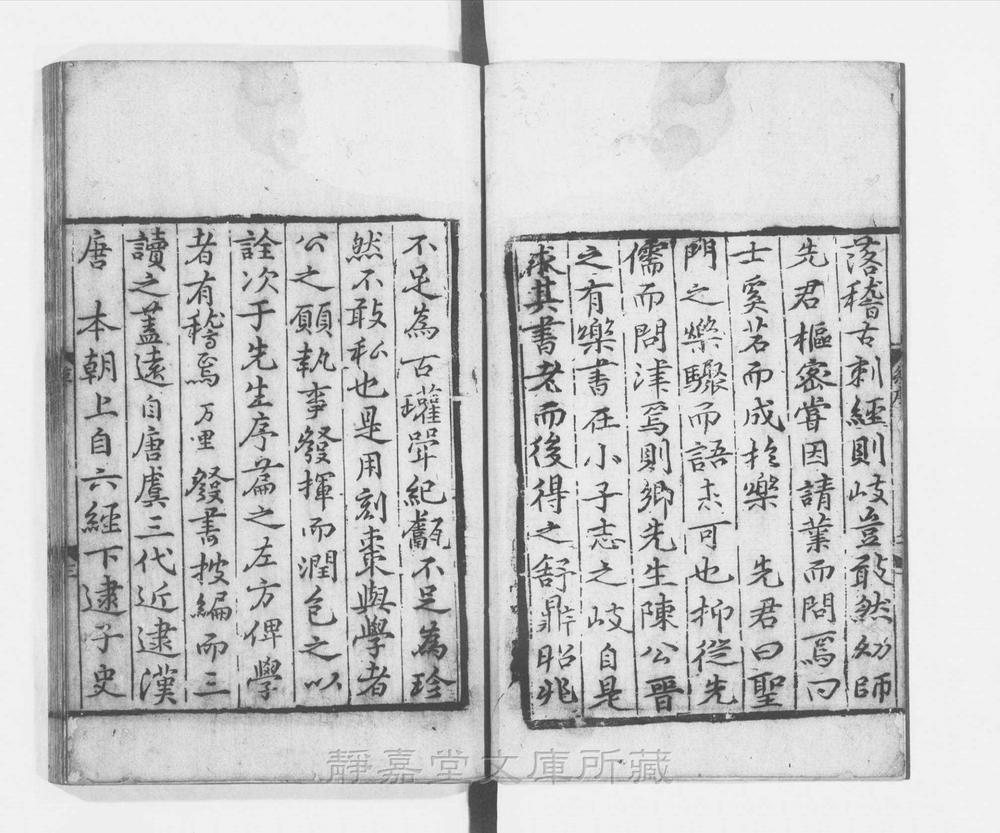 落稽古刺經則岐豈敢然幼師
先君樞密嘗因請業而問焉曰
士奚若而成於樂　先君曰聖
門之樂驟而語未可也抑從先
儒而問津焉則鄉先生陳公晋
之有樂書在小子志之岐自是
求其書老而後得之舒鼎昭兆
不足為古瓘斝紀甗不足為珍
然不敢私也是用刻棗與學者
公之願執事發揮而潤色之以
詮次于先生序篇之左方俾學
者有稽焉万里發書披編而三
讀之蓋遠自唐虞三代近逮漢
唐　本朝上自六經下逮子史
靜嘉堂文庫所藏